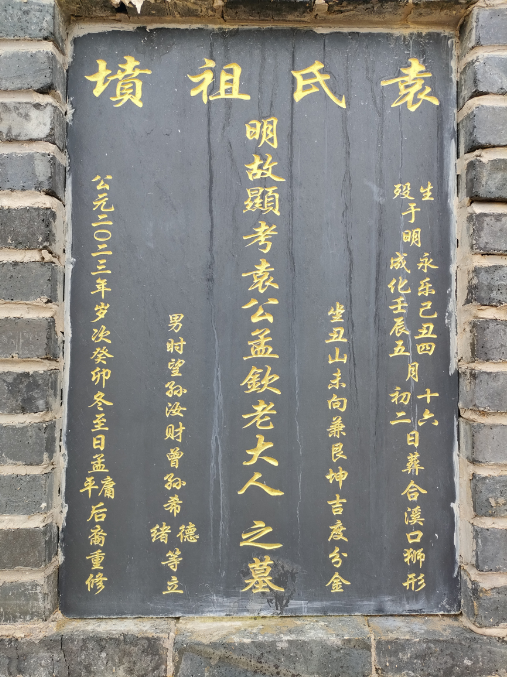 袁氏祖墳
生歿于明永乐己丑四成化壬辰五月十六初二日葬合溪口狮形
坐丑山未向兼艮坤吉度分金
明故顯考袁公孟欽老大人之墓
男时望孙汝财曾孙希德绪等立
公元二〇二三年岁次癸卯冬至日孟庸平后裔重修